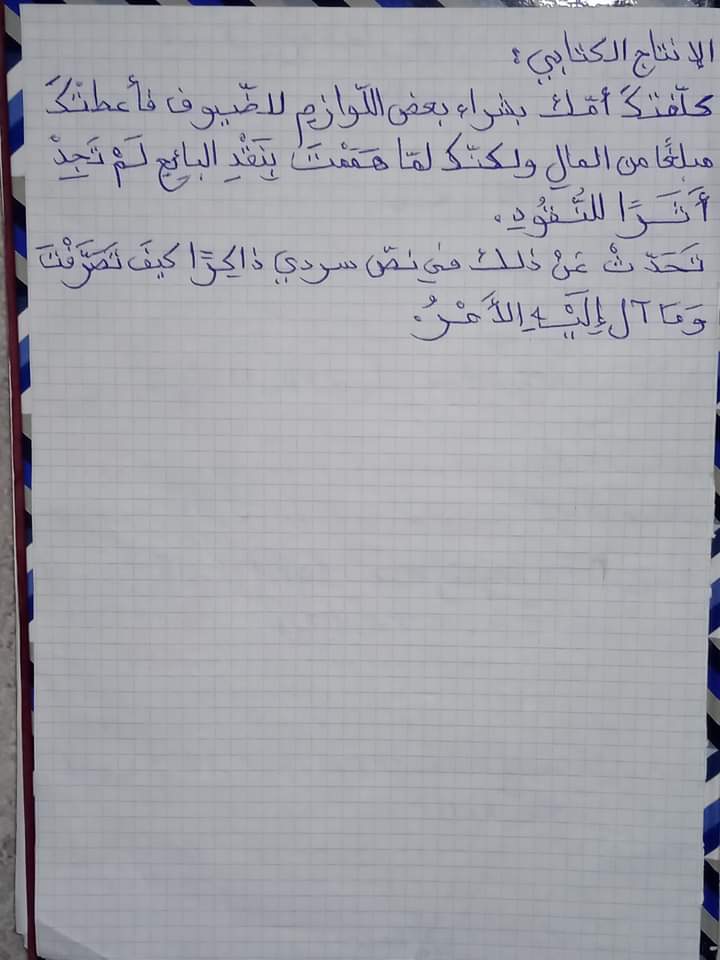 الإنتاج الكتابي :
كلّفتكَ أمّك بشراء بعض اللّوازم للضّيوف فأعطتْكَ
مبلغًا من المال ولكنّك لمّا هَمَمْتَ بِنَقْدِ البائع لَمْ تَجِدْ
أَثَرًا للنُّقُودِ.
تَحَدّثْ عَنْ ذلك في نصّ سردي ذاكِرًا كيفَ تَصَرَّفْتَ
وَمَا آل إِلَيْهِ الأَمْرُ.